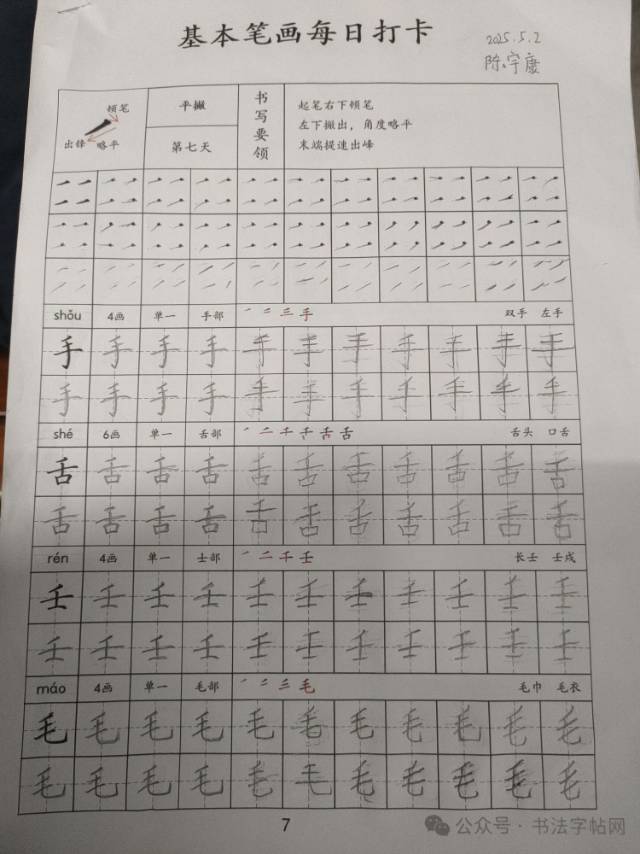 基本笔画每日打卡
2025.5.2
陈宇康
顿笔
出锋 略平
平撇
第七天
书写要领
起笔右下顿笔
左下撇出，角度略平
末端提速出峰
shǒu 4画 单一 手部 双手 左手
手 手 手 手 手 手 手 手 手 手 手
手 手 手 手 手 手 手 手 手 手 手
shé 6画 单一 舌部 舌头 口舌
舌 舌 舌 舌 舌 舌 舌 舌 舌 舌 舌
舌 舌 舌 舌 舌 舌 舌 舌 舌 舌 舌
rén 4画 单一 士部 长壬 壬戌
壬 壬 壬 壬 壬 壬 壬 壬 壬 壬 壬
壬 壬 壬 壬 壬 壬 壬 壬 壬 壬 壬
máo 4画 单一 毛部 毛巾 毛衣
毛 毛 毛 毛 毛 毛 毛 毛 毛 毛 毛
毛 毛 毛 毛 毛 毛 毛 毛 毛 毛 毛
7
公众号·书法字帖网